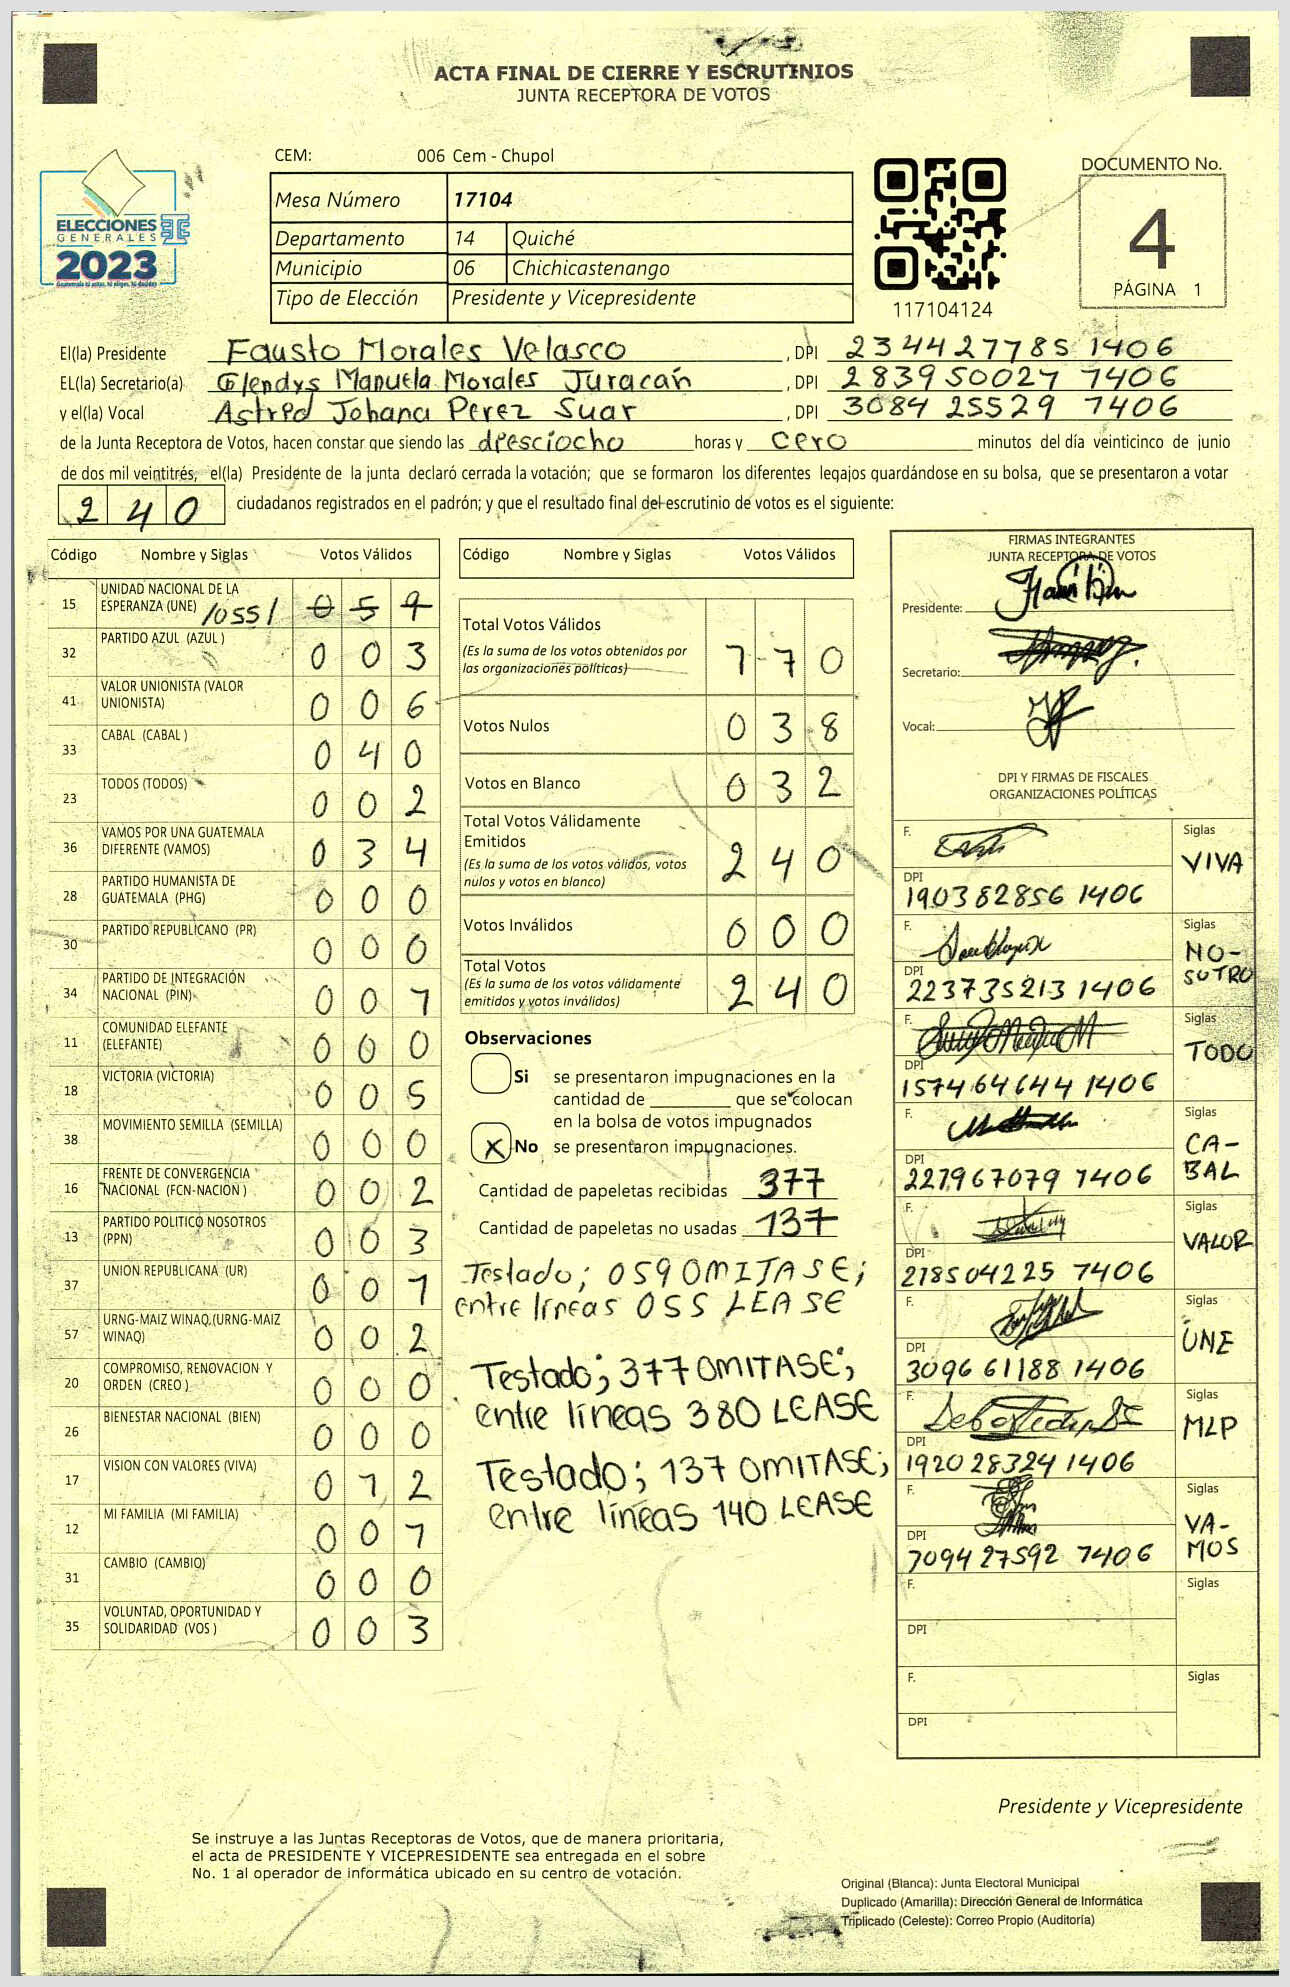 ACTA FINAL DE CIERRE Y ESCRUTINIOS
JUNTA RECEPTORA DE VOTOS
CEM: 006 Cem - Chupol
ELECCIONES
GENERALES
2023
Mesa Número 17104
Departamento 14 Quiché
Municipio 06 Chichicastenango
Tipo de Elección Presidente y Vicepresidente
117104124
DOCUMENTO No.
4
PÁGINA 1
El(la) Presidente Fausto Morales Velasco, DPI 234427785 1406
EL(la) Secretario(a) Glendys Manuela Morales Juracán, DPI 283950027 1406
y el(la) Vocal Astrid Johana Perez Suar, DPI 3084 25529 1406
de la Junta Receptora de Votos, hacen constar que siendo las diesciocho horas y cero minutos del día veinticinco de junio
de dos mil veintitrés, el(la) Presidente de la junta declaró cerrada la votación; que se formaron los diferentes legajos quardándose en su bolsa, que se presentaron a votar
240 ciudadanos registrados en el padrón; y que el resultado final del escrutinio de votos es el siguiente:
Código Nombre y Siglas Votos Válidos
15 UNIDAD NACIONAL DE LA ESPERANZA (UNE) /055/ 059
32 PARTIDO AZUL (AZUL ) 003
41 VALOR UNIONISTA (VALOR UNIONISTA) 006
33 CABAL (CABAL ) 040
23 TODOS (TODOS) 002
36 VAMOS POR UNA GUATEMALA DIFERENTE (VAMOS) 034
28 PARTIDO HUMANISTA DE GUATEMALA (PHG) 000
30 PARTIDO REPUBLICANO (PR) 000
34 PARTIDO DE INTEGRACIÓN NACIONAL (PIN) 001
11 COMUNIDAD ELEFANTE (ELEFANTE) 000
18 VICTORIA (VICTORIA) 005
38 MOVIMIENTO SEMILLA (SEMILLA) 000
16 FRENTE DE CONVERGENCIA NACIONAL (FCN-NACION ) 002
13 PARTIDO POLITICO NOSOTROS (PPN) 003
37 UNION REPUBLICANA (UR) 001
57 URNG-MAIZ WINAQ (URNG-MAIZ WINAQ) 002
20 COMPROMISO, RENOVACION Y ORDEN (CREO ) 000
26 BIENESTAR NACIONAL (BIEN) 000
17 VISION CON VALORES (VIVA) 012
12 MI FAMILIA (MI FAMILIA) 001
31 CAMBIO (CAMBIO) 000
35 VOLUNTAD, OPORTUNIDAD Y SOLIDARIDAD (VOS ) 003
Código Nombre y Siglas Votos Válidos
Total Votos Válidos 170
(Es la suma de los votos obtenidos por
las organizaciones políticas)
Votos Nulos 038
Votos en Blanco 032
Total Votos Válidamente
Emitidos 240
(Es la suma de los votos válidos, votos
nulos y votos en blanco)
Votos Inválidos 000
Total Votos 240
(Es la suma de los votos válidamente
emitidos y votos inválidos)
Observaciones
Si se presentaron impugnaciones en la
cantidad de ________ que se colocan
en la bolsa de votos impugnados
X No se presentaron impugnaciones.
Cantidad de papeletas recibidas 377
Cantidad de papeletas no usadas 137
Testado; 059 OMITASE;
entre líneas 055 LEASE
Testado; 377 OMITASE;
entre líneas 380 LEASE
Testado; 137 OMITASE;
entre líneas 140 LEASE
FIRMAS INTEGRANTES
JUNTA RECEPTORA DE VOTOS
Presidente:
Secretario:
Vocal:
DPI Y FIRMAS DE FISCALES
ORGANIZACIONES POLÍTICAS
F. Siglas VIVA
DPI 190382856 1406
F. Siglas NO-SUTRO
DPI 223735213 1406
F. Siglas TODO
DPI 1574 64644 1406
F. Siglas CA-BAL
DPI 227967079 1406
F. Siglas VALOR
DPI 218504225 1406
F. Siglas UNE
DPI 3096 61188 1406
F. Siglas MLP
DPI 1920 28324 1406
F. Siglas VA-MOS
DPI 7094 27592 1406
F. Siglas
DPI
F. Siglas
DPI
Presidente y Vicepresidente
Se instruye a las Juntas Receptoras de Votos, que de manera prioritaria,
el acta de PRESIDENTE Y VICEPRESIDENTE sea entregada en el sobre
No. 1 al operador de informática ubicado en su centro de votación.
Original (Blanca): Junta Electoral Municipal
Duplicado (Amarilla): Dirección General de Informática
Triplicado (Celeste): Correo Propio (Auditoría)